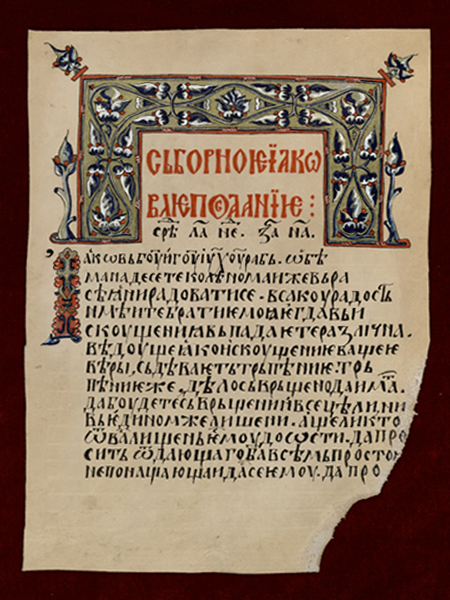 СЬБОРНОѤ ІАКО
ВЛѤ ПОСЛАНІЕ :
срѣ. ла. не. за. на.
Іаковь боу и гоу іу хоу рабь. обѣ
ма на десете колѣнома иже вь ра
сѣꙗни радовати се. всакоу радость
имѣите братие моꙗ ѥгда вьи
скоушениꙗ вьпадаѥте различна.
вѣдоуще ꙗко искоушение вашеѥ
вѣры, сьдѣваѥть трьпѣние. трь
пѣние же. дѣло сьврьшено да има.
да боудете сьврьшени и всецѣли, ни
вь ѥдином же лишени. аще ли кто
ѿ ва лишень ѥмоудрости. да про
сить ѿ дающаго ба всѣмь просто и
не поношающа и дасе ѥмоу. да про